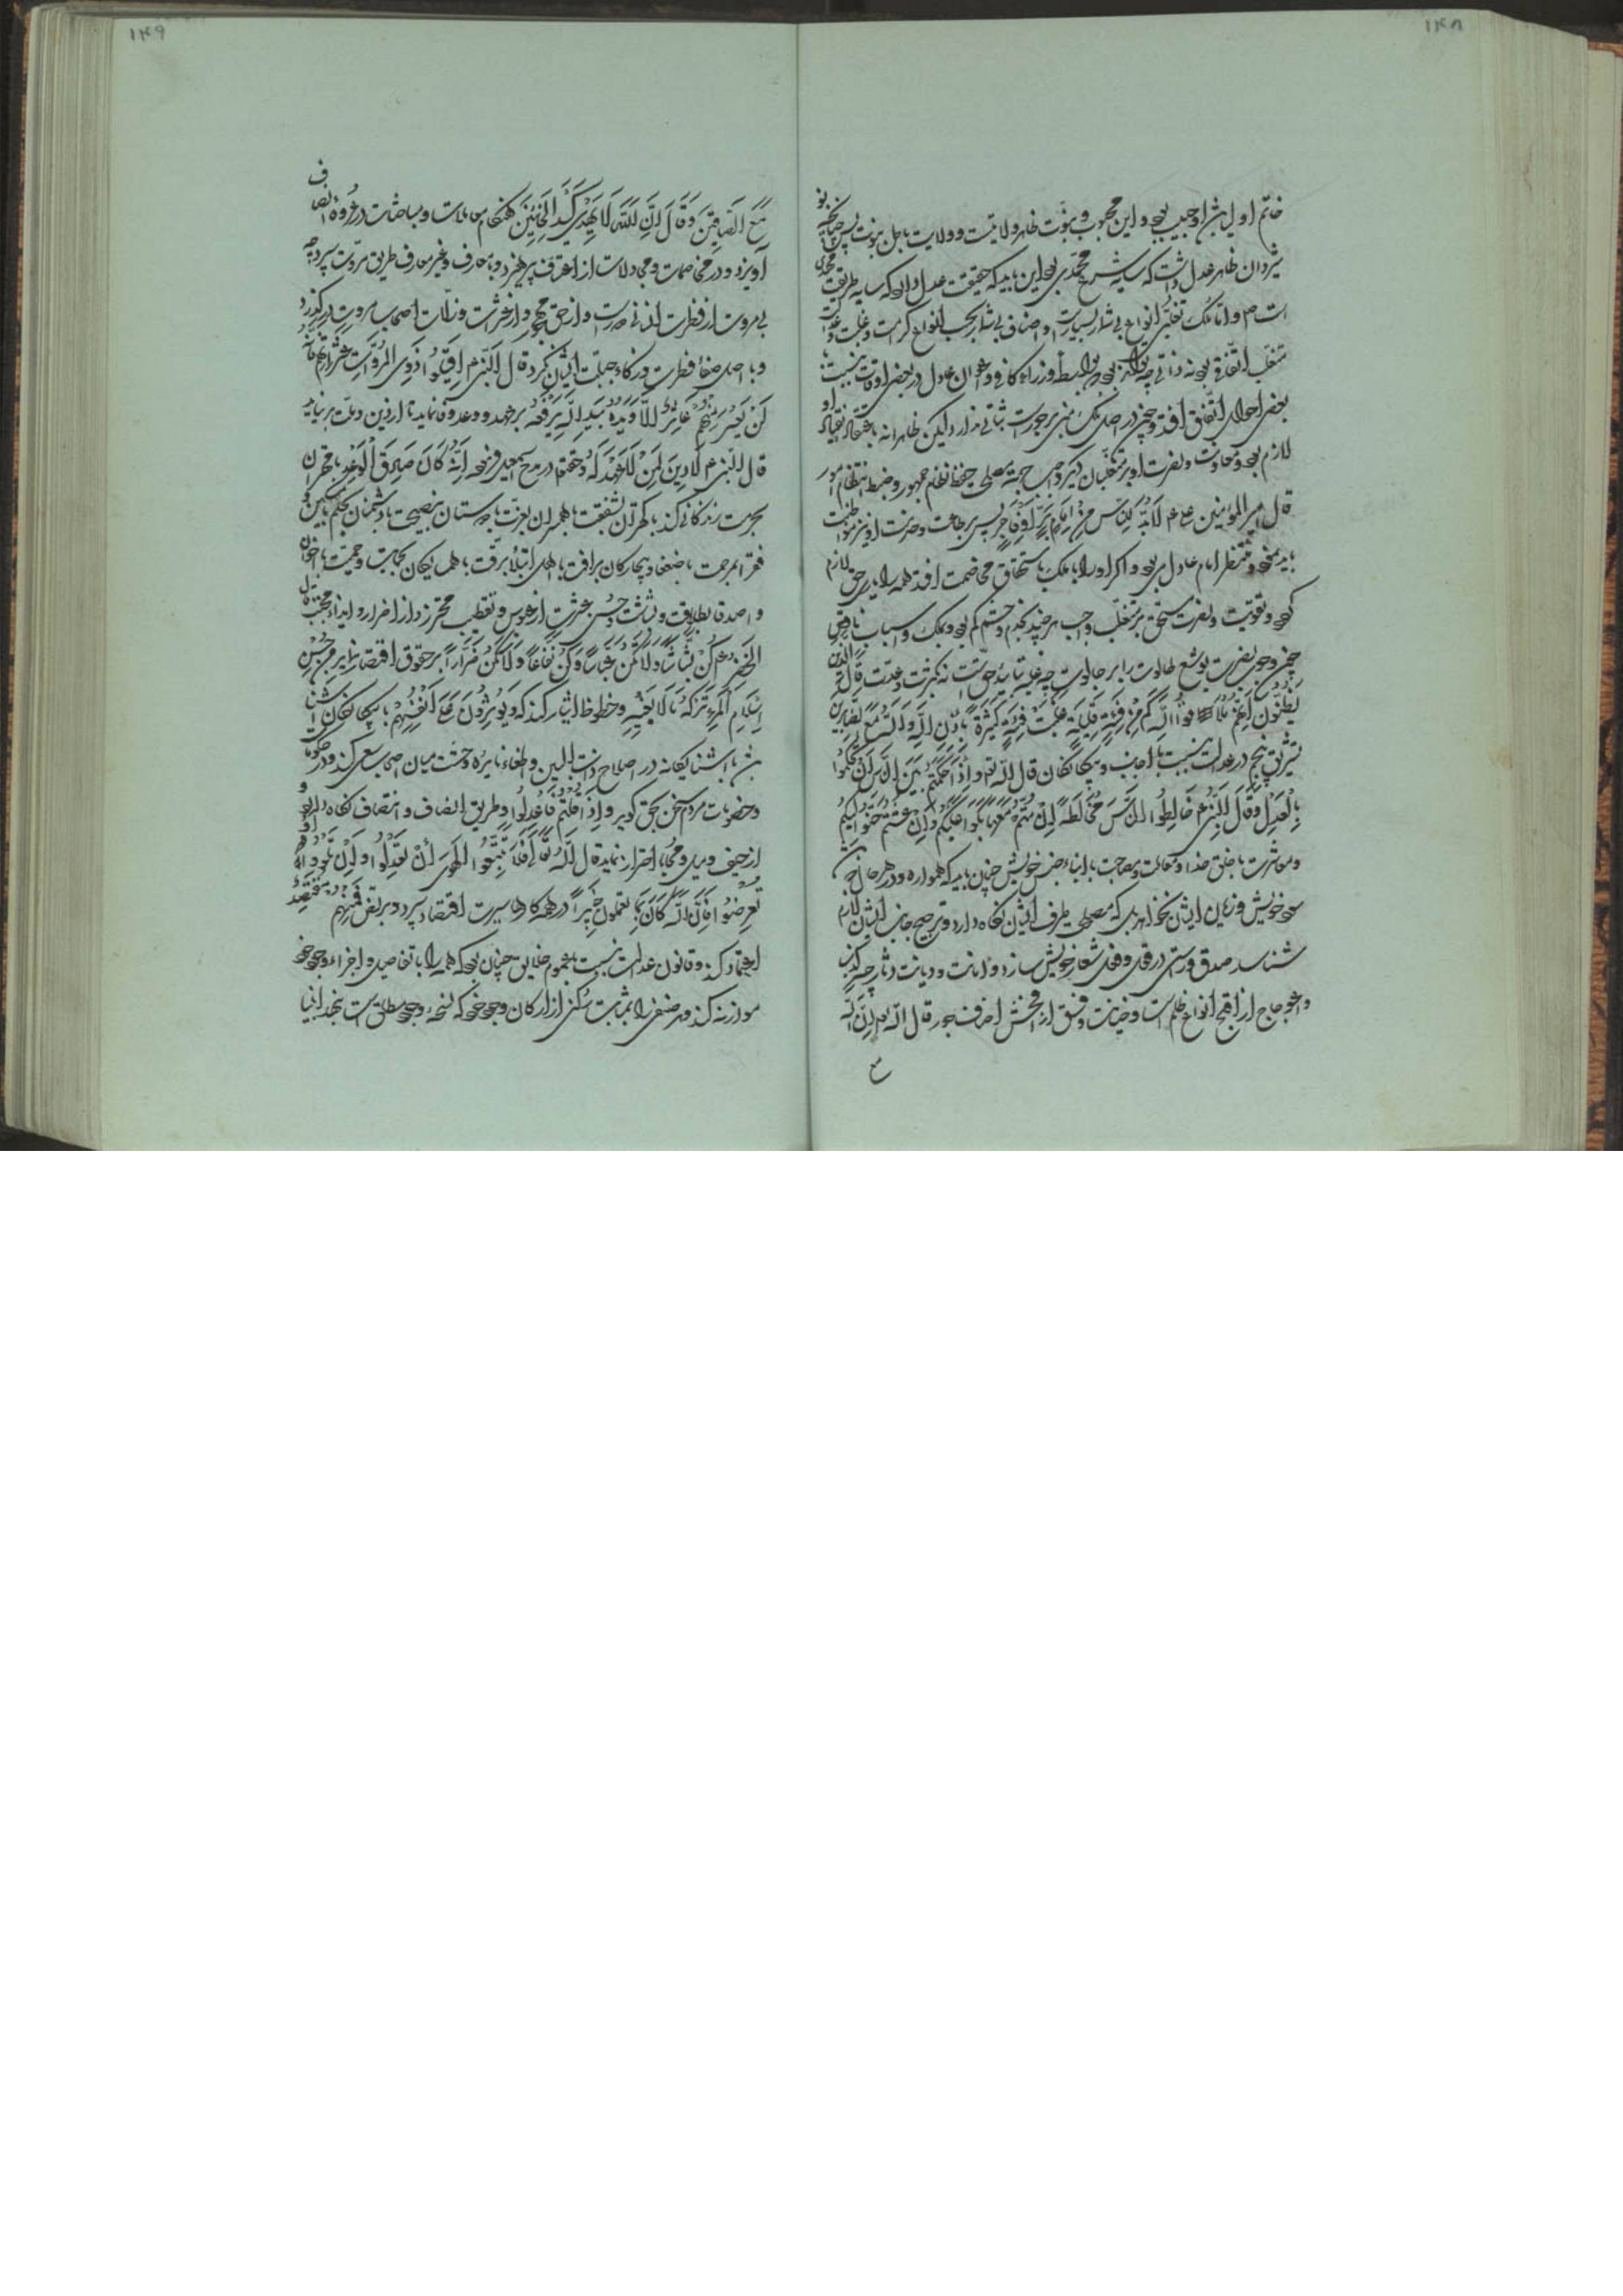 ۱۴۸
خاتم اولیا بشر او حبیب بود و این محبوب و نبوت ظاهر ولایتست و ولایت باطن نبوت پس چنانکه
ظاهر عدل داشت که سایه شرع محمدی بود این باید که حقیقت عدل دارد که سایه طریقت محمدی
است و اما ملک تغلبی انواع بی‌شمار بسیارست و اصناف بی‌شمار بحسب انواع
متغلب اتفاقی بود نه ذاتی چه بواسطه وزراء کافی و اعوان عادل در بعضی اوقات نسبت با
بعضی احوال اتفاق افتد و چون در اصل ملک مبنی بر جورست ثباتی ندارد لیکن ظاهرا نه باعتقاد انقیاد او
لازم بود و معاونت و نصرت او بر متغلبان دیگر واجب جهة مصلحت حفظ نظام جمهور و ضبط انتظام امور
قال امیر المؤمنین علی ع لَابُدَّ لِلنَّاسِ مِنْ اِمَامٍ بَرٍّ اَوْ فَاجِرٍ پس بر طاعت و خدمت او نیز مواظبت
باید نمود و منتظر امام عادل می‌بود و اگر او را با ملک باستحقاق مخاصمت افتد همه را یاری حق لازم
بود و تقویت و نصرت مستحق بر متغلب واجب هر چند بخدم و حشم کم بود و بملک و اسباب ناقص
چون وجوب نصرت یوشع طالوت را بر جالوت چه غلبه بتأیید حق است نه بکثرت و عدت قَالَ الَّذِینَ
یَظُنُّونَ اَنَّهُمْ مُلَاقُوا اللَّهِ کَمْ مِنْ فِئَةٍ قَلِیلَةٍ غَلَبَتْ فِئَةً کَثِیرَةً بِاِذْنِ اللَّهِ وَاللَّهُ مَعَ الصَّابِرِینَ
تشریق پنجم در عدالت نسبت با اجانب و بیگانگان قال الله تع وَ اِذَا حَکَمْتُمْ بَیْنَ النَّاسِ اَنْ تَحْکُمُوا
بِالْعَدْلِ وَ قَالَ النَّبِیُّ ع خَالِطُوا النَّاسَ مُخَالَطَةً اِنْ مُتُّمْ مَعَهَا بَکَوْا عَلَیْکُمْ وَ اِنْ عِشْتُمْ حَنُّوا اِلَیْکُمْ
و معاشرت با خلق خدا و معاملت و مصاحبت با ابناء جنس خویش چنان باید که همواره و در هر حال
سود خویش و زیان ایشان نخواهد بل که مصلحت طرف ایشان نگاه دارد و ترجیح جانب ایشان لازم
شناسد صدق و راستی در قول و فعل شعار خویش سازد و امانت و دیانت دثار چه کذب
و اعوجاج از اقبح انواع ظلم است و خیانت و فسق از افحش اصناف جور قال الله تع اِنَّ اللَّهَ
مع
۱۴۹
مَعَ الصَّادِقِینَ وَ قَالَ اِنَّ اللَّهَ لَا یَهْدِی کَیْدَ الْخَائِنِینَ هنگام معاملات و مباحثات در عروه انصاف
آویزد و در مخاصمات و مجادلات از اعتساف پرهیزد و با معارف و غیر معارف طریق مروت سپرد چه
بی‌مروت از فطرت انسانی دورست و از حق مهجور و از عثرات و زلات اصحاب مروت درگذرد
و با اصل صفاء فطرت و زکاء جبلت ایشان نگرد قال النبی ع اَقِیلُوا ذَوِی الْمُرُوَّاتِ عَثَرَاتِهِمْ فَاِنَّهُ
لَنْ یَعْثُرَ مِنْهُمْ عَاثِرٌ اِلَّا وَ یَدُهُ بِیَدِ اللَّهِ یَرْفَعُهُ بر عهد و وعد وفا نماید تا از دین و ملت برنیاید
قال النبی ع لَا دِینَ لِمَنْ لَا عَهْدَ لَهُ و حق تع در مدح اسمعیل فرمود اِنَّهُ کَانَ صَادِقَ الْوَعْدِ با مهتران
بحرمت زندگانی کند با کهتران بشفقت با همسران بعزت با دوستان بنصیحت با دشمنان بحکم با
فقرا بمرحمت با ضعفا و بیچارگان برأفت با اهل ابتلا برقت با همسایگان بحمایت و حمیت با اخوان
و اصدقا بطلاقت و بشاشت و حسن عشرت از عبوس و تقطیب محترز و از اضرار و ایذاء مجتنب قال
النبی ع کُنْ بَشَّاشًا وَ لَا تَکُنْ عَبَّاسًا وَ کُنْ نَفَّاعًا وَ لَا تَکُنْ ضَرَّارًا بر حقوق اقتصار نماید مِنْ حُسْنِ
اِسْلَامِ الْمَرْءِ تَرْکُهُ مَا لَا یَعْنِیهِ و حظوظ ایثار کند که وَ یُؤْثِرُونَ عَلَی اَنْفُسِهِمْ با بیگانگان آشنا
باشد با آشنا یگانه در اصلاح ذات البین و اطفاء نایره وحشت میان اصحاب سعی کند و در حکومات
و خصومات مردم سخن بحق گوید وَ اِذَا قُلْتُمْ فَاعْدِلُوا و طریق انصاف و انتصاف نگاه دارد و
از حیف و میل و محابا احتراز نماید قال الله تع فَلَا تَتَّبِعُوا الْهَوَی اَنْ تَعْدِلُوا وَ اِنْ تَلْوُوا اَوْ
تُعْرِضُوا فَاِنَّ اللَّهَ کَانَ بِمَا تَعْمَلُونَ خَبِیرًا در همه کارها سیرت اقتصاد سپرد و بر نص فَمِنْهُمْ مُقْتَصِدٌ
اعتماد کند و قانون عدالت نسبت بعموم خلایق چنان بود که همه را با تفاصیل و اجزاء وجود خود
موازنه کند و هر صنفی را بمثابت رکنی از ارکان وجود خود که نسخه وجود مطلق است